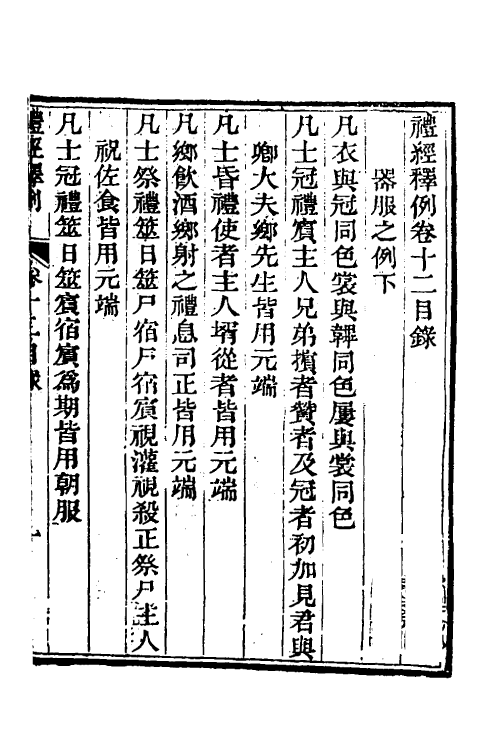 禮經釋例卷十二目錄
器服之例下
凡衣與冠同色裳與韠同色屨與裳同色
凡士冠禮賓主人兄弟擯者贊者及冠者初加見君與
鄉大夫鄉先生皆用元端
凡士昏禮使者主人壻從者皆用元端
凡鄉飲酒鄉射之禮息司正皆用元端
凡士祭禮筮日筮尸宿尸宿賓視濯視殺正祭尸主人
祝佐食皆用元端
凡士冠禮筮日筮賓宿賓爲期皆用朝服
禮經釋例 卷十二目錄 一